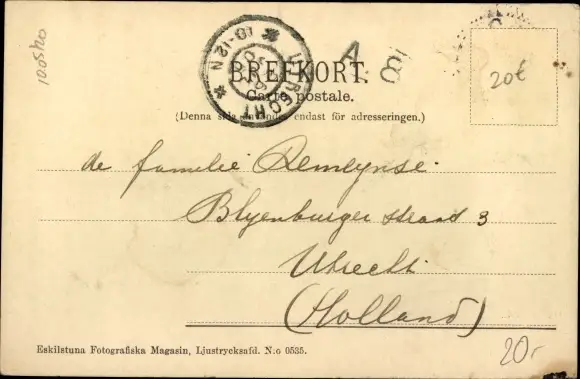 100520
10-12 N
UTRECHT
A
BREFKORT.
Carte postale.
(Denna sida användes endast för adresseringen.)
20€
de familie Remeynse.
Blyenburger straat 3
Utrecht
(Holland)
Eskilstuna Fotografiska Magasin, Ljustrycksafd. N:o 0535.
20,-